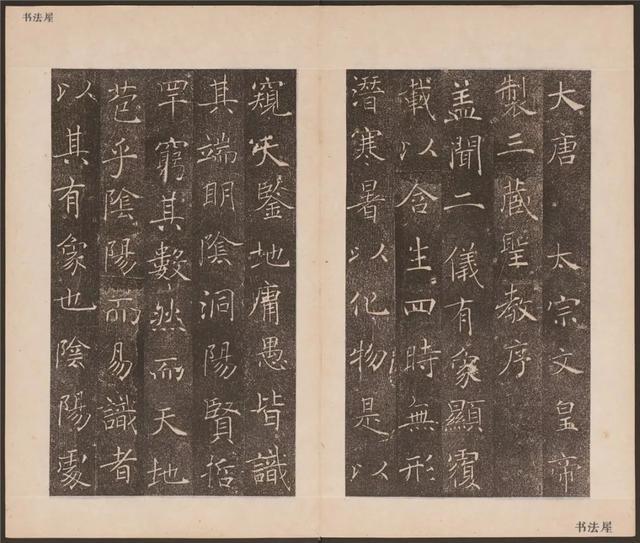 书法屋
大唐 太宗文皇帝
製三藏聖教序
盖聞二儀有象顯覆
載以含生四時無形
潛寒暑以化物是以
窺天鑒地庸愚皆識
其端明陰洞陽賢哲
罕窮其數然而天地
苞乎陰陽而易識者
以其有象也陰陽處
书法屋